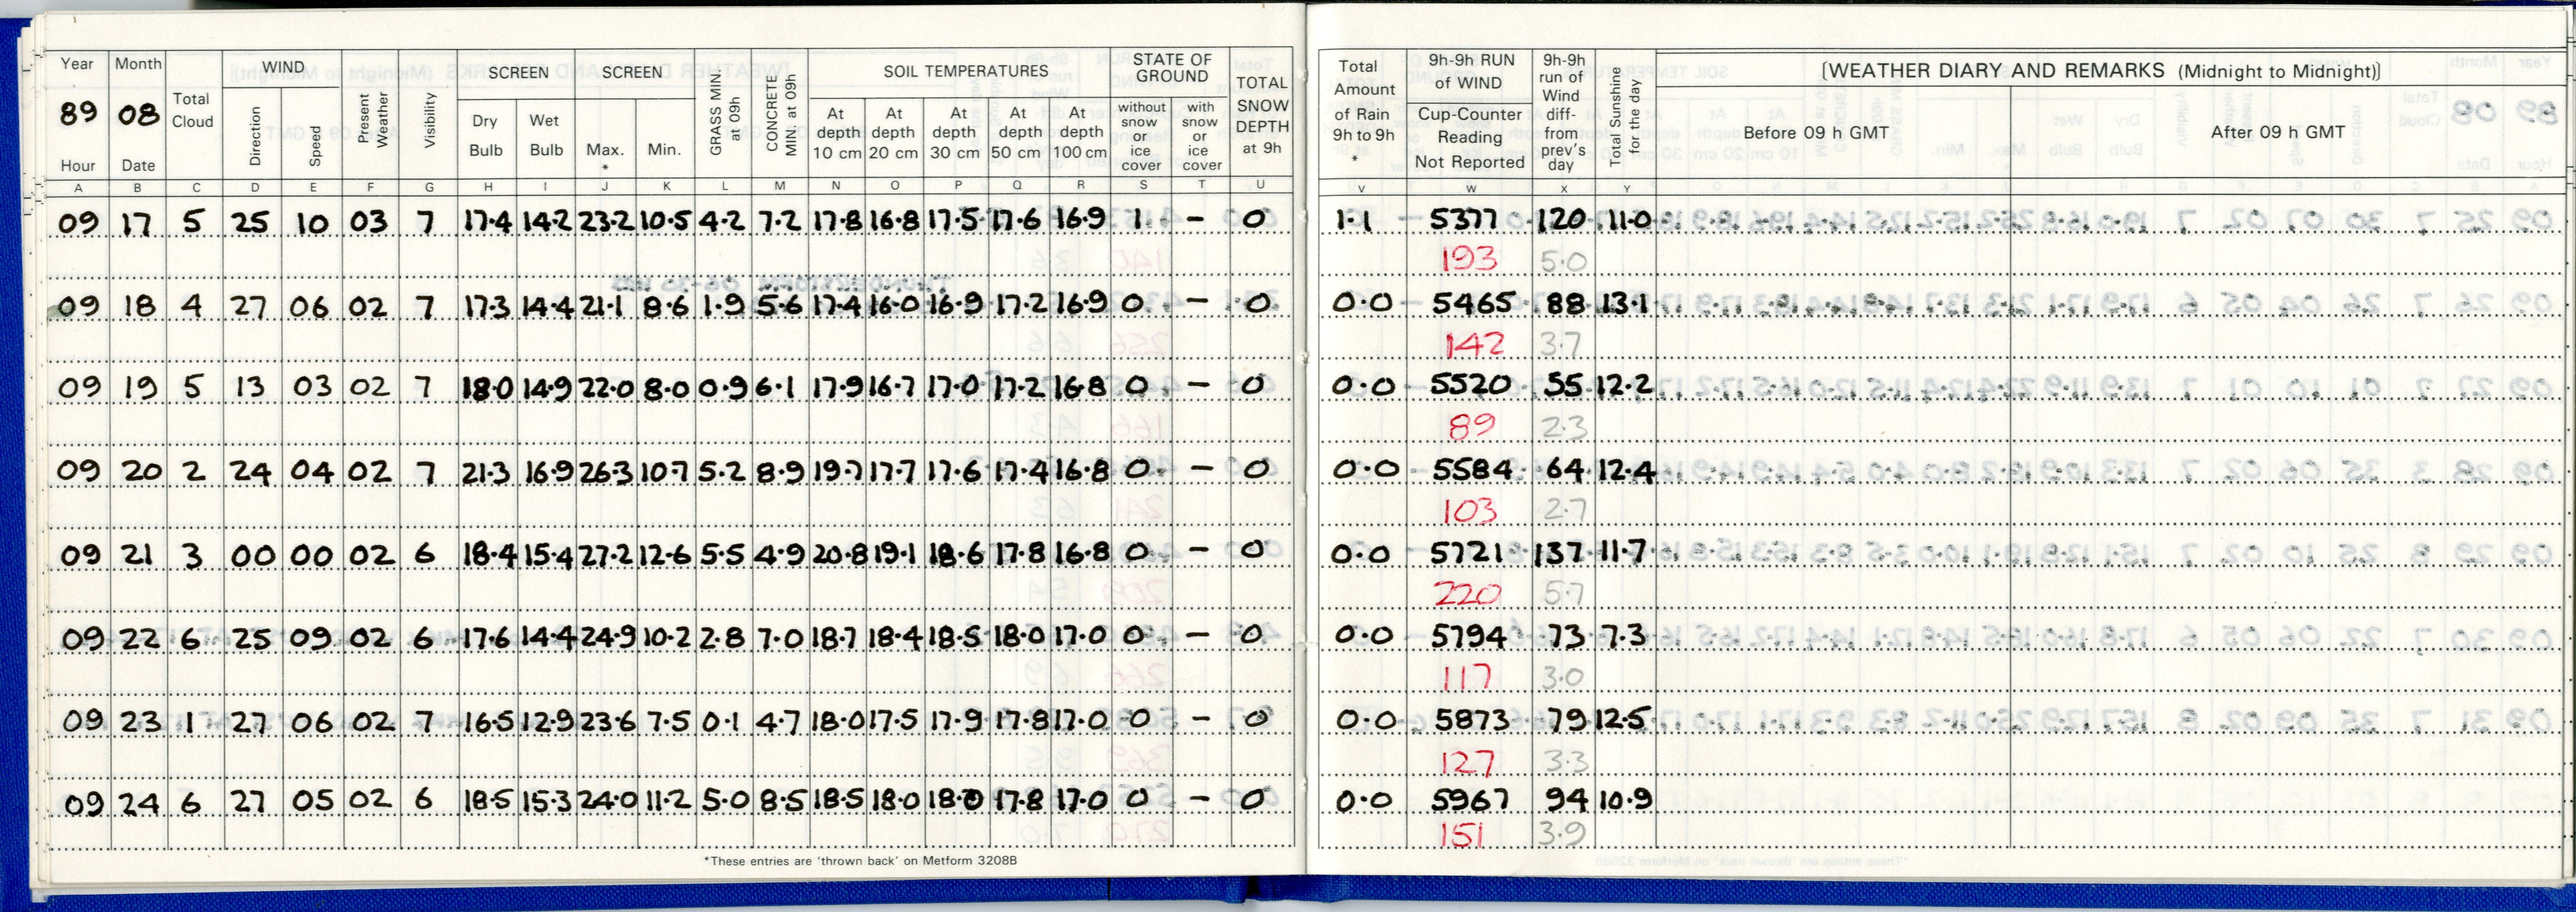 Year Month Total Cloud WIND Present Weather Visibility SCREEN SCREEN GRASS MIN. at 09h CONCRETE MIN. at 09h SOIL TEMPERATURES STATE OF GROUND TOTAL SNOW DEPTH at 9h Total Amount of Rain 9h to 9h * 9h-9h RUN of WIND 9h-9h run of Wind diff- from prev's day Total Sunshine for the day [WEATHER DIARY AND REMARKS (Midnight to Midnight)]
89 08 Direction Speed Dry Bulb Wet Bulb Max. * Min. At depth 10 cm At depth 20 cm At depth 30 cm At depth 50 cm At depth 100 cm without snow or ice cover with snow or ice cover Cup-Counter Reading Not Reported Before 09 h GMT After 09 h GMT
Hour Date
A B C D E F G H I J K L M N O P Q R S T U V W X Y
09 17 5 25 10 03 7 17.4 14.2 23.2 10.5 4.2 7.2 17.8 16.8 17.5 17.6 16.9 1 – 0 1.1 5377 120 11.0
193 5.0
09 18 4 27 06 02 7 17.3 14.4 21.1 8.6 1.9 5.6 17.4 16.0 16.9 17.2 16.9 0 – 0 0.0 5465 88 13.1
142 3.7
09 19 5 13 03 02 7 18.0 14.9 22.0 8.0 0.9 6.1 17.9 16.7 17.0 17.2 16.8 0 – 0 0.0 5520 55 12.2
89 2.3
09 20 2 24 04 02 7 21.3 16.9 26.3 10.7 5.2 8.9 19.7 17.7 17.6 17.4 16.8 0 – 0 0.0 5584 64 12.4
103 2.7
09 21 3 00 00 02 6 18.4 15.4 27.2 12.6 5.5 4.9 20.8 19.1 18.6 17.8 16.8 0 – 0 0.0 5721 137 11.7
220 5.7
09 22 6 25 09 02 6 17.6 14.4 24.9 10.2 2.8 7.0 18.7 18.4 18.5 18.0 17.0 0 – 0 0.0 5794 73 7.3
117 3.0
09 23 1 27 06 02 7 16.5 12.9 23.6 7.5 0.1 4.7 18.0 17.5 17.9 17.8 17.0 0 – 0 0.0 5873 79 12.5
127 3.3
09 24 6 27 05 02 6 18.5 15.3 24.0 11.2 5.0 8.5 18.5 18.0 18.0 17.8 17.0 0 – 0 0.0 5967 94 10.9
151 3.9
*These entries are 'thrown back' on Metform 3208B